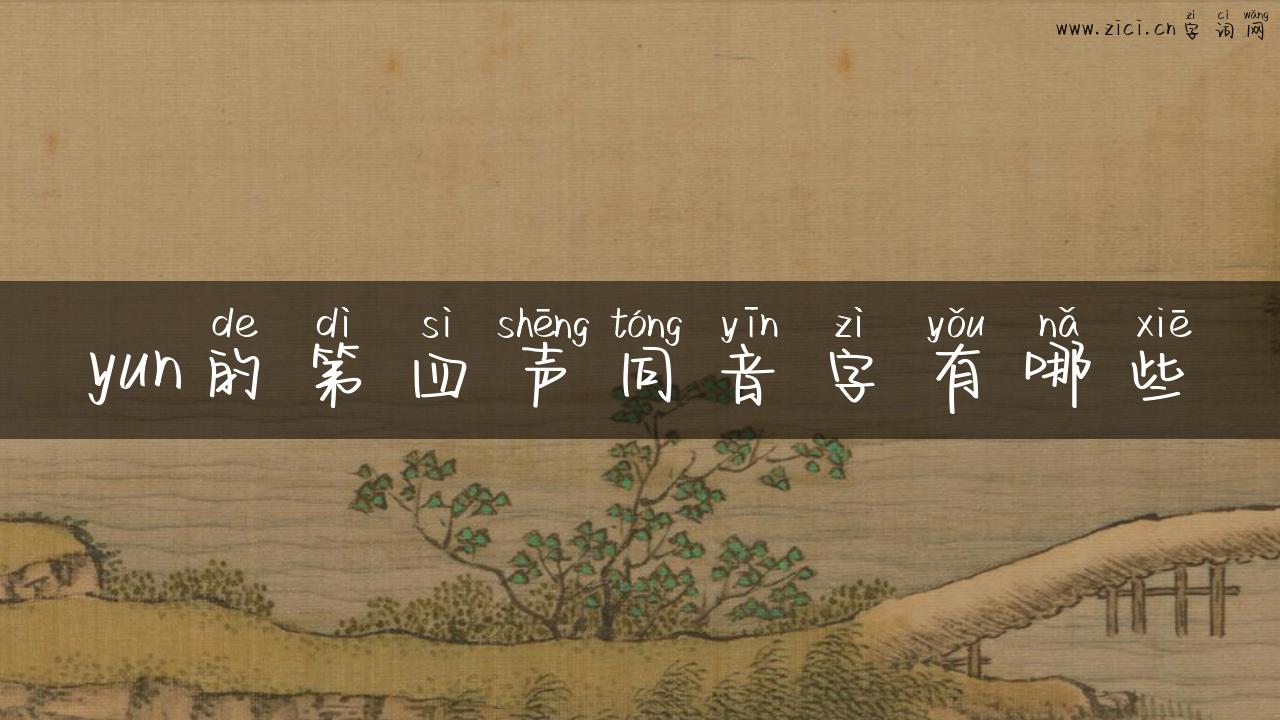 zì cí wǎng
www.zici.cn字词网
de dì sì shēng tóng yīn zì yǒu nǎ xiē
yun的第四声同音字有哪些